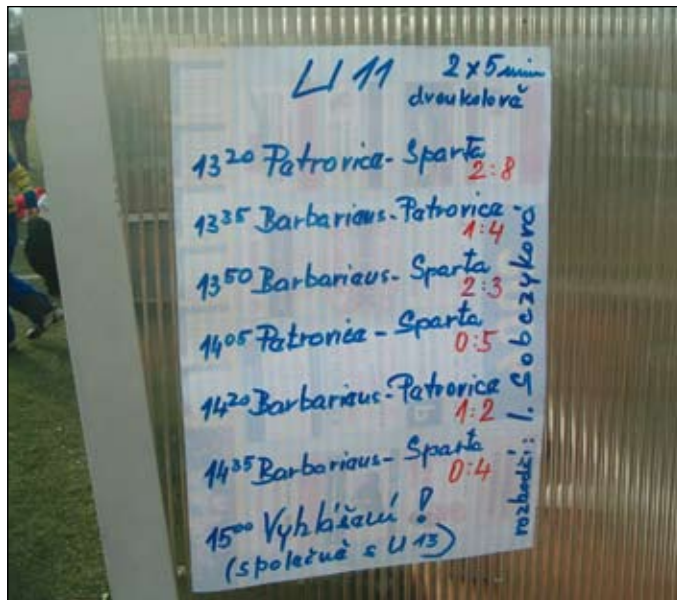 U 11 2 x 5 min
dvoukolově
13 20 Patrovica - Sparta
2:8
13 35 Barbarians - Patrovica -
1:4
13 50 Barbarians - Sparta
2:3
14 05 Patrovica - Sparta
0:5
14 20 Barbarians - Patrovica
1:2
14 35 Barbarians - Sparta
0:4
15 00 Vyhlášení !
(společně s U 13)
rozhodčí: I. Sobczyková